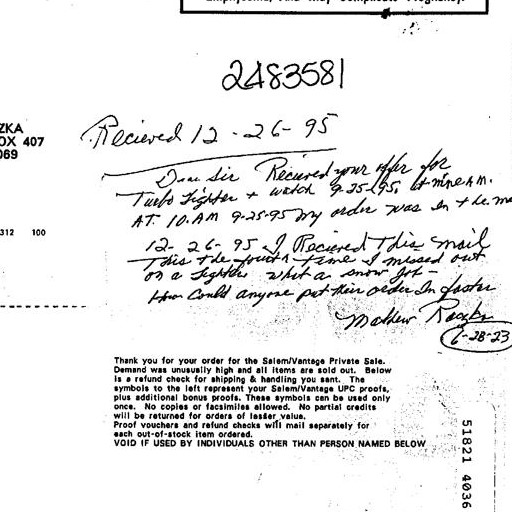 Emphysema, And May Complicate Pregnancy.
2483581
ZKA
OX 407
069
Recieved 12-26-95
Dear Sir Recieved your offer for
Turbo Lighter + watch 9-25-95, at nine A.M.
AT 10.AM 9-25-95 my order was In the
312 100
12-26-95 I Recieved This mail
This the fourth time I missed out
on a Lighter what a snow Job -
How Could anyone put their order In faster
Mathew
6-28-23
Thank you for your order for the Salem/Vantage Private Sale.
Demand was unusually high and all items are sold out. Below
is a refund check for shipping & handling you sent. The
symbols to the left represent your Salem/Vantage UPC proofs,
plus additional bonus proofs. These symbols can be used only
once. No copies or facsimiles allowed. No partial credits
will be returned for orders of lesser value.
Proof vouchers and refund checks will mail separately for
each out-of-stock item ordered.
VOID IF USED BY INDIVIDUALS OTHER THAN PERSON NAMED BELOW
51821 4036